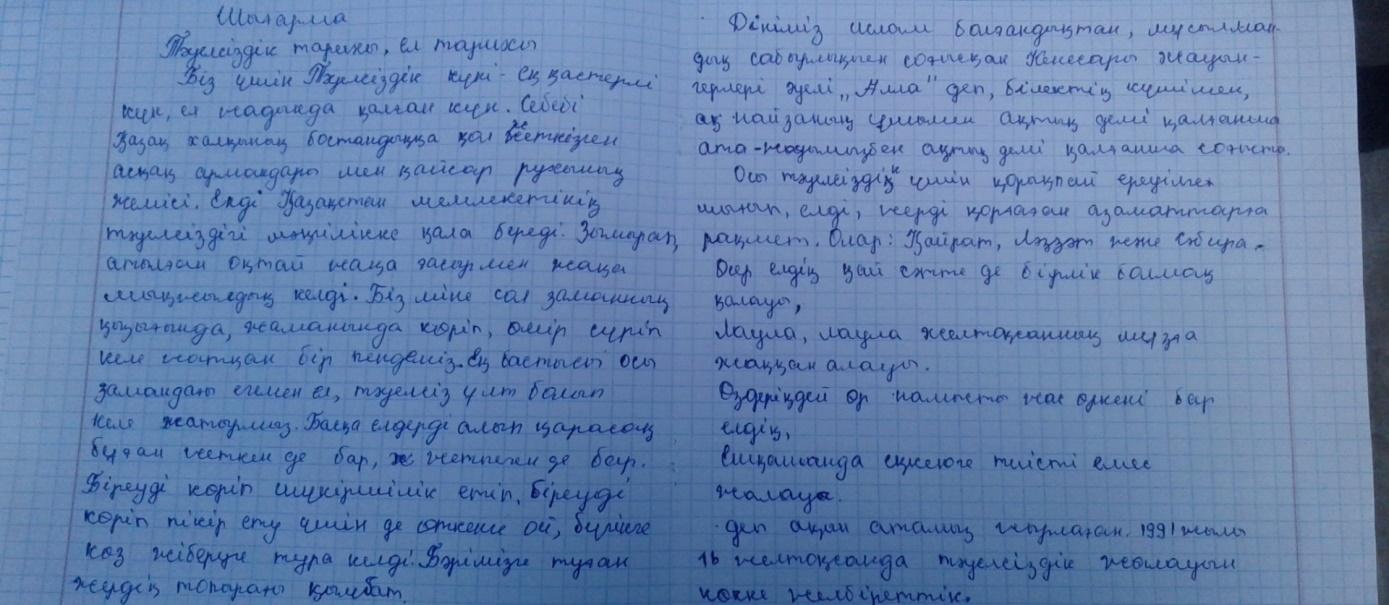 Шығарма
Тәуелсіздік тарихы, ел тарихы
Біз үшін Тәуелсіздік күні - ең қастерлі
күн, ел жадында қалған күн. Себебі
Қазақ халқының бостандыққа қол жеткізген
асқақ армандары мен қайсар рухының
жемісі. Енді Қазақстан мемлекетінің
тәуелсіздігі мәңгілікке қала береді. Зымырап,
атылған оқтай жаңа ғасырмен жаңа
мыңжылдық келді. Біз міне сол заманның
қызығында, жаманында көріп, өмір сүріп
келе жатқан бір пендеміз. Ең бастысы осы
замандағы егемен ел, тәуелсіз ұлт болып
келе жатырмыз. Басқа елдерді алып қарасақ
бұдан жеткен де бар, жетпеген де бар.
Біреуді көріп шүкіршілік етіп, біреуді
көріп пікір ету үшін де өткенге ой, бүгінге
көз жіберуге тура келді. Бәрімізге туған
жердің топырағы қымбат.
Дініміз ислам болғандықтан, мұсылман-
дық сабырлықпен соғысқан Кенесары жауын-
герлері әуелі ,,Алла" деп, білектің күшімен,
ақ найзаның ұшымен ақтық демі қалғанша
ата-жауымызбен ақтық демі қалғанша соғысты.
Осы тәуелсіздік үшін қорықпай ереуілге
шығып, елді, жерді қорғаған азаматтарға
рақмет. Олар: Қайрат, Ләззат және Сабира.
Әсер елдің қай сәтте де бірлік болмақ
қалауы,
Лаула, лаула желтоқсанның мұзға
жаққан алауы.
Өздеріңдей өр намысты жас өркені бар
елдің,
Ешқашанда еңкеюге тиісті емес
жалауы.
деп ақын атамыз жырлаған. 1991 жылы
16 желтоқсанда тәуелсіздік жалауын
көкке желбіреттік.